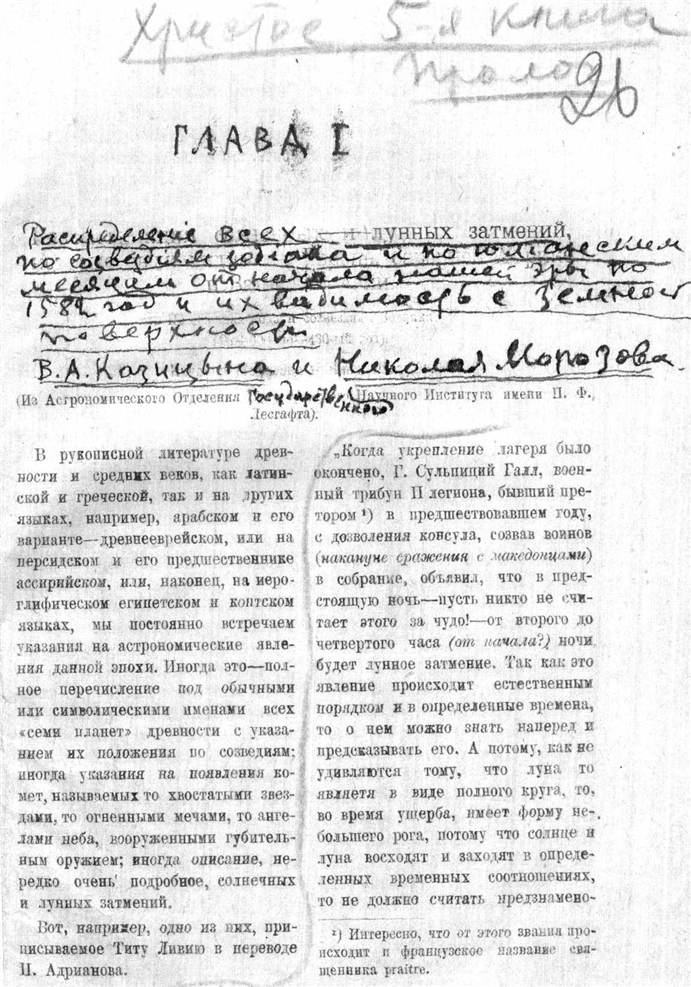 Христос 5-я книга
пролог
26
ГЛАВА I
Распределение всех — и лунных затмений,
по созвездиям зодиака и по юлианским
месяцам от начала нашей эры по
1582 год и их видимость с земной
поверхности
В.А. Казицына и Николая Морозова.
(Из Астрономического Отделения Государственного Научного Института имени П. Ф.
Лесгафта).
В рукописной литературе древ-
ности и средних веков, как латин-
ской и греческой, так и на других
языках, например, арабском и его
варианте—древнееврейском, или на
персидском и его предшественнике
ассирийском, или, наконец, на иеро-
глифическом египетском и коптском
языках, мы постоянно встречаем
указания на астрономические явле-
ния данной эпохи. Иногда это—пол-
ное перечисление под обычными
или символическими именами всех
«семи планет» древности с указа-
нием их положения по созведиям;
иногда указания на появления ко-
мет, называемых то хвостатыми звез-
дами, то огненными мечами, то анге-
лами неба, вооруженными губитель-
ным оружием; иногда описание, не-
редко очень подробное, солнечных
и лунных затмений.
Вот, например, одно из них, при-
писываемое Титу Ливию в переводе
П. Адрианова.
„Когда укрепление лагеря было
окончено, Г. Сульпиций Галл, воен-
ный трибун II легиона, бывший пре-
тором ¹) в предшествовавшем году,
с дозволения консула, созвав воинов
(накануне сражения с македонцами)
в собрание, объявил, что в пред-
стоящую ночь—пусть никто не счи-
тает этого за чудо!—от второго до
четвертого часа (от начала?) ночи
будет лунное затмение. Так как это
явление происходит естественным
порядком и в определенные времена,
то о нем можно знать наперед и
предсказывать его. А потому, как не
удивляются тому, что луна то
являетя в виде полного круга, то,
во время ущерба, имеет форму не-
большего рога, потому что солнце и
луна восходят и заходят в опреде-
ленных временных соотношениях,
то не должно считать предзнамено-
¹) Интересно, что от этого звания про-
исходит и французское название свя-
щенника praitre.